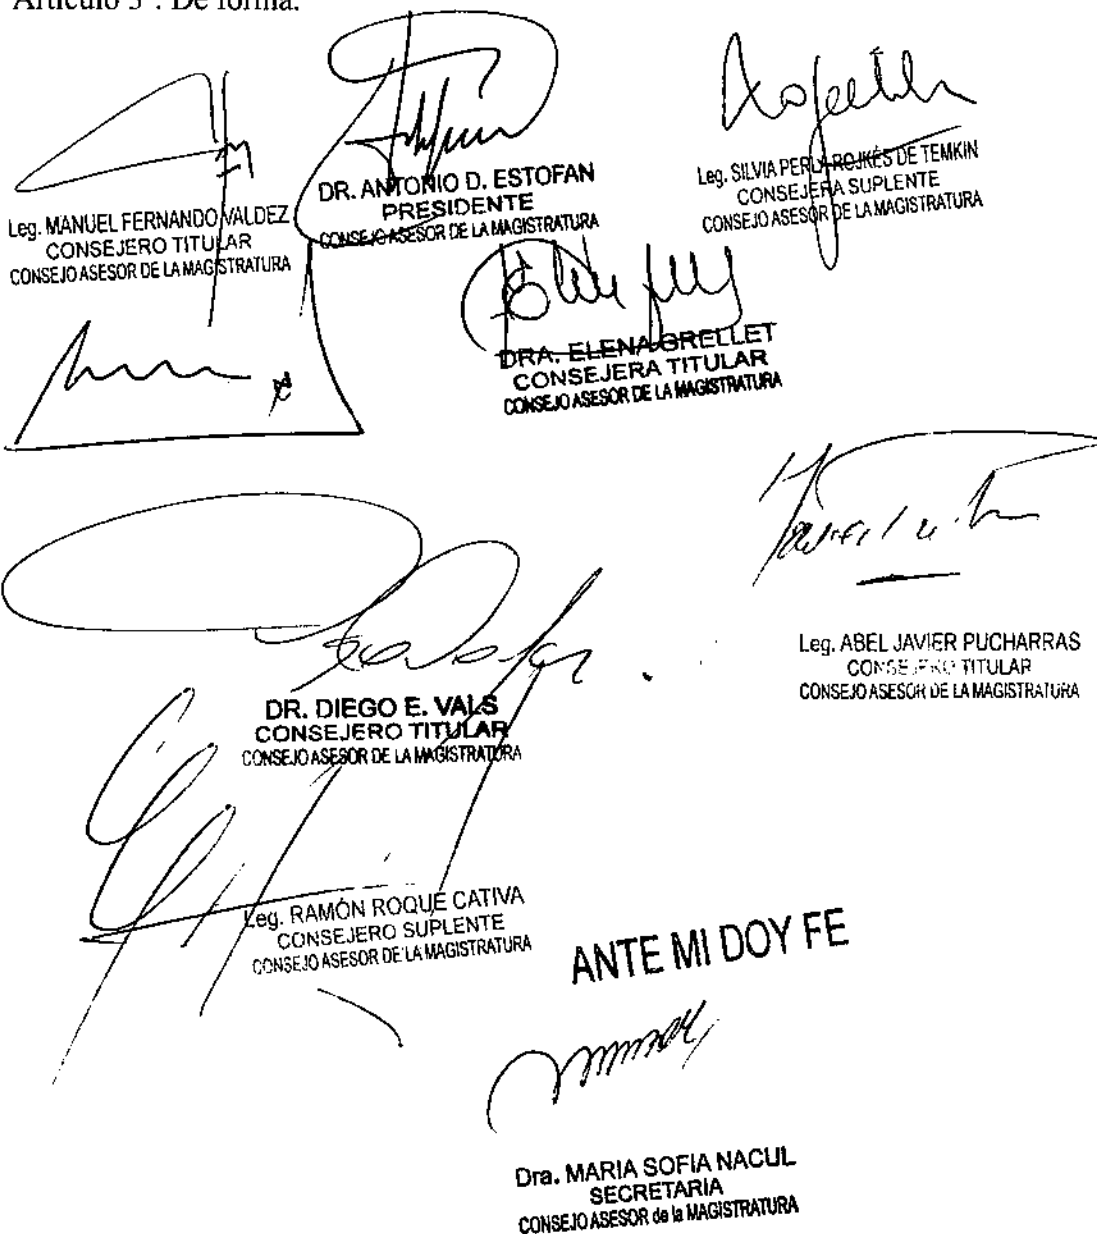 Artículo 3°. De forma.
Leg. MANUEL FERNANDO VALDEZ
CONSEJERO TITULAR
CONSEJO ASESOR DE LA MAGISTRATURA
DR. ANTONIO D. ESTOFAN
PRESIDENTE
CONSEJO ASESOR DE LA MAGISTRATURA
Leg. SILVIA PERLA ROJKÉS DE TEMKIN
CONSEJERA SUPLENTE
CONSEJO ASESOR DE LA MAGISTRATURA
DRA. ELENA GRELLET
CONSEJERA TITULAR
CONSEJO ASESOR DE LA MAGISTRATURA
Leg. ABEL JAVIER PUCHARRAS
CONSEJERO TITULAR
CONSEJO ASESOR DE LA MAGISTRATURA
DR. DIEGO E. VALS
CONSEJERO TITULAR
CONSEJO ASESOR DE LA MAGISTRATURA
Leg. RAMÓN ROQUE CATIVA
CONSEJERO SUPLENTE
CONSEJO ASESOR DE LA MAGISTRATURA
ANTE MI DOY FE
Dra. MARIA SOFIA NACUL
SECRETARIA
CONSEJO ASESOR de la MAGISTRATURA